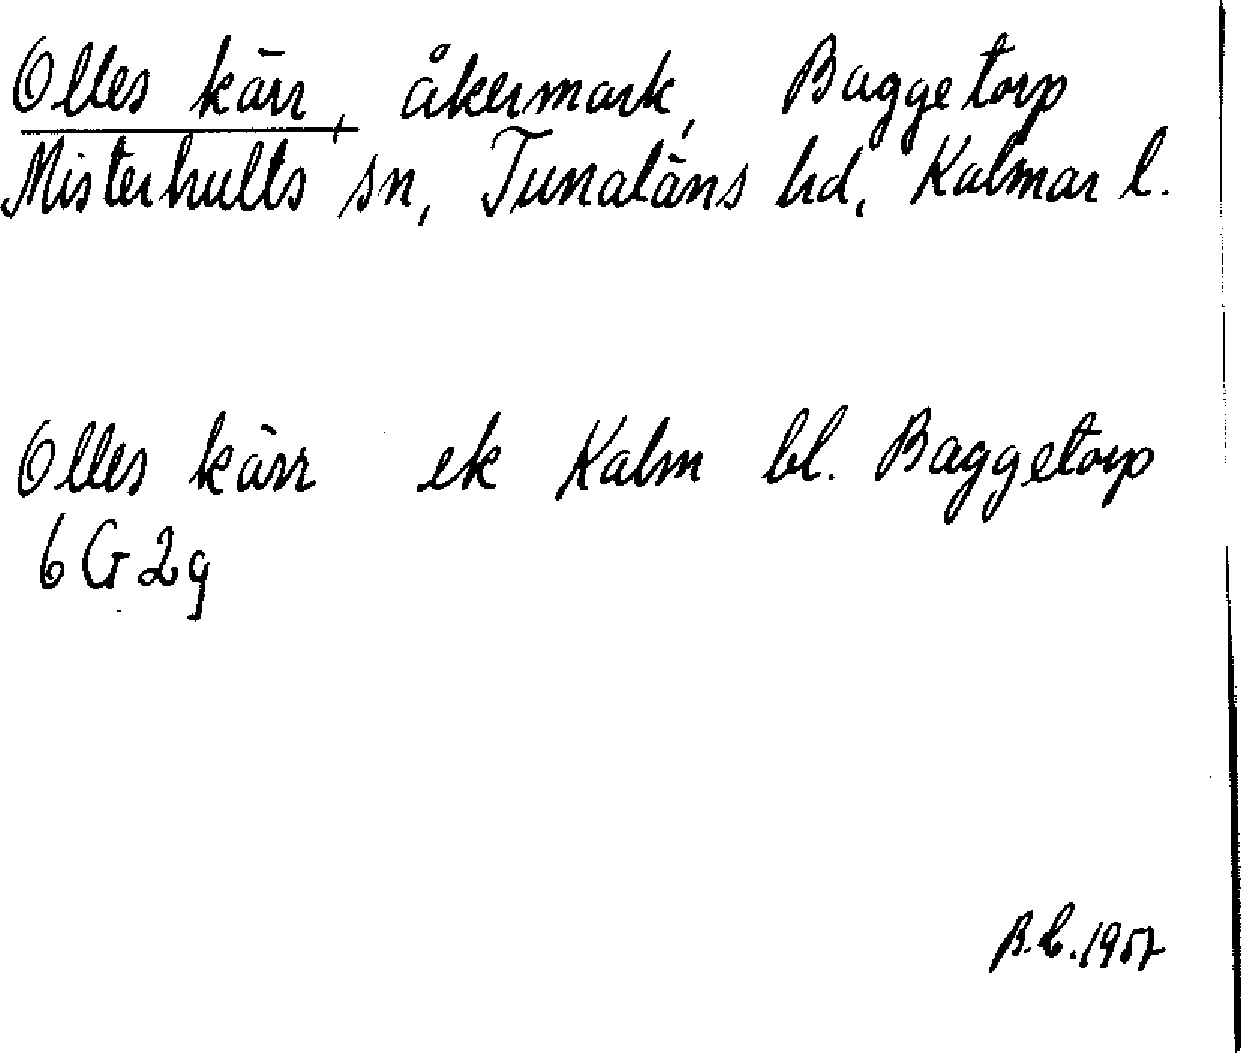 Olles kärr, åkermark, Baggetorp
Misterhults sn, Tunaläns hd, Kalmar l.
Olles kärr ek Kalm bl. Baggetorp
6 G 2g
1957